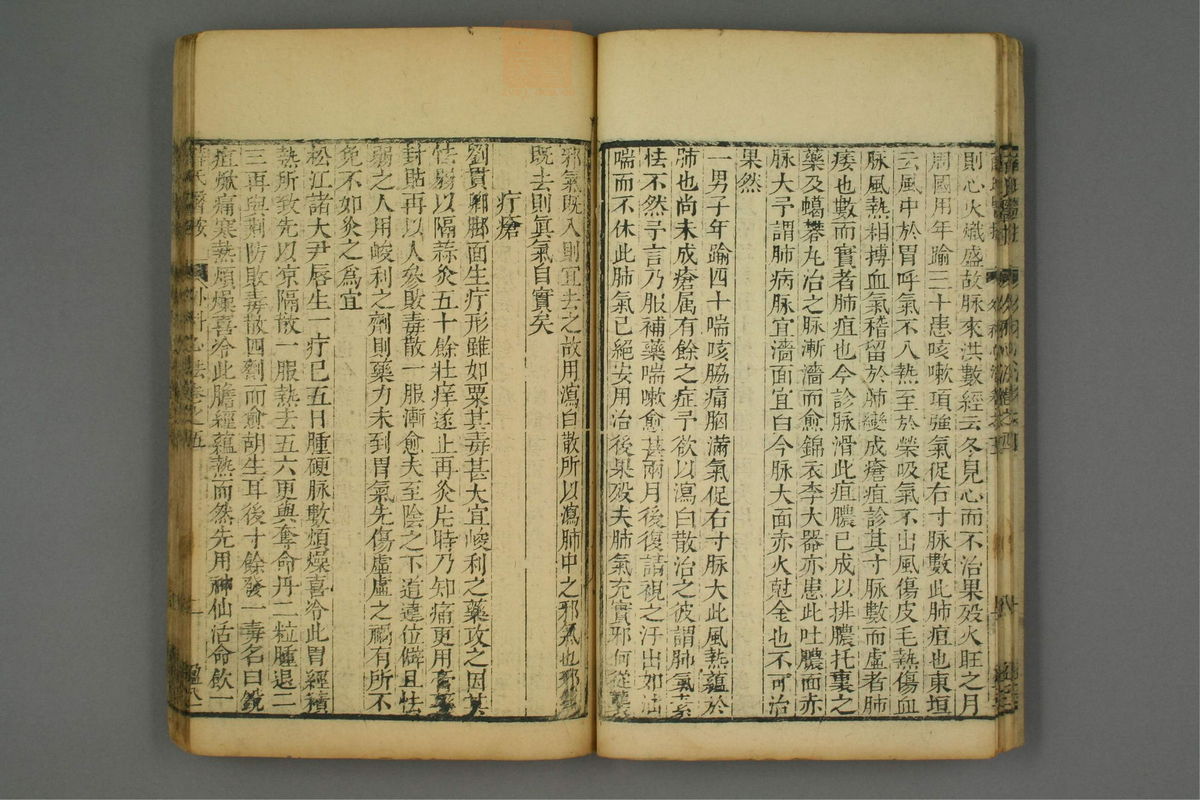 則心火熾盛故脉來洪數經云冬見心而不治果殁火旺之月
周國用年踰三十患咳嗽項強氣促右寸脉數此肺疽也東垣
云風中於胃呼氣不入熱至於榮吸氣不出風傷皮毛熱傷血
脉風熱相搏血氣稽留於肺變成瘡疽診其寸脉數而虛者肺
痿也數而實者肺疽也今診脉滑此疽膿已成以排膿托裏之
藥及蠟礬丸治之脉漸濇而愈錦衣李大器亦患此吐膿面赤
脉大予謂肺病脉宜濇面宜白今脉大面赤火尅金也不可治
果然
一男子年踰四十喘咳脇痛胸滿氣促右寸脉大此風熱蘊於
肺也尚未成瘡属有餘之症予欲以瀉白散治之彼謂肺氣素
怯不然予言乃服補藥喘嗽愈甚兩月後復請視之汗出如油
喘而不休此肺氣已絕安用治後果殁夫肺氣充實邪何從襲
邪氣既入則宜去之故用瀉白散所以瀉肺中之邪氣也邪氣
既去則眞氣自實矣
疔瘡
劉貫卿脚面生疔形雖如粟其毒甚大宜峻利之藥攻之因其
怯弱以隔蒜灸五十餘壯痒遂止再灸片時乃知痛更用膏藥
封貼再以人參敗毒散一服漸愈夫至陰之下道遠位僻且怯
弱之人用峻利之劑則藥力未到胃氣先傷虛虛之禍有所不
免不如灸之爲宜
松江諸大尹唇生一疔已五日腫硬脉數煩燥喜冷此胃經積
熱所致先以凉隔散一服熱去五六更與奪命丹二粒腫退二
三再與荆防敗毒散四劑而愈胡生耳後寸餘發一毒名曰銳
疽焮痛寒熱煩燥喜冷此膽經蘊熱而然先用神仙活命飲一
外科心法卷之五